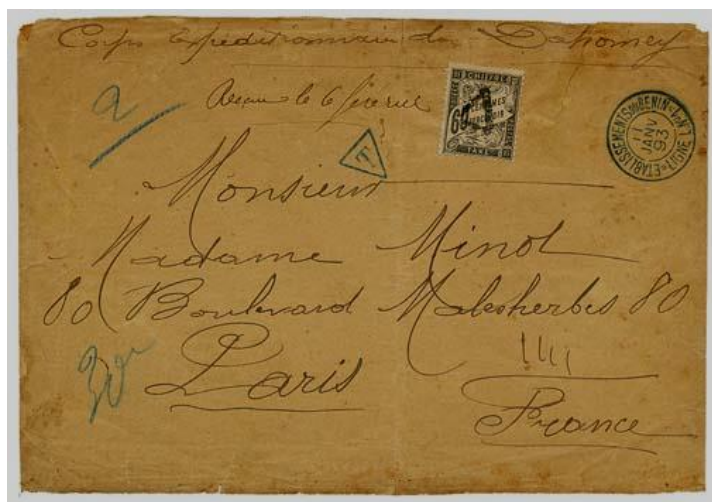 Corps Expéditionnaire du Dahomey
2
le 6 février
CHIFFRE
60
TAXE
T
ETABLISSEMENTS DU BENIN
LIGNE
11
JANV
93
Monsieur
Madame Minot
80 Boulevard Malesherbes 80
30
Paris
France